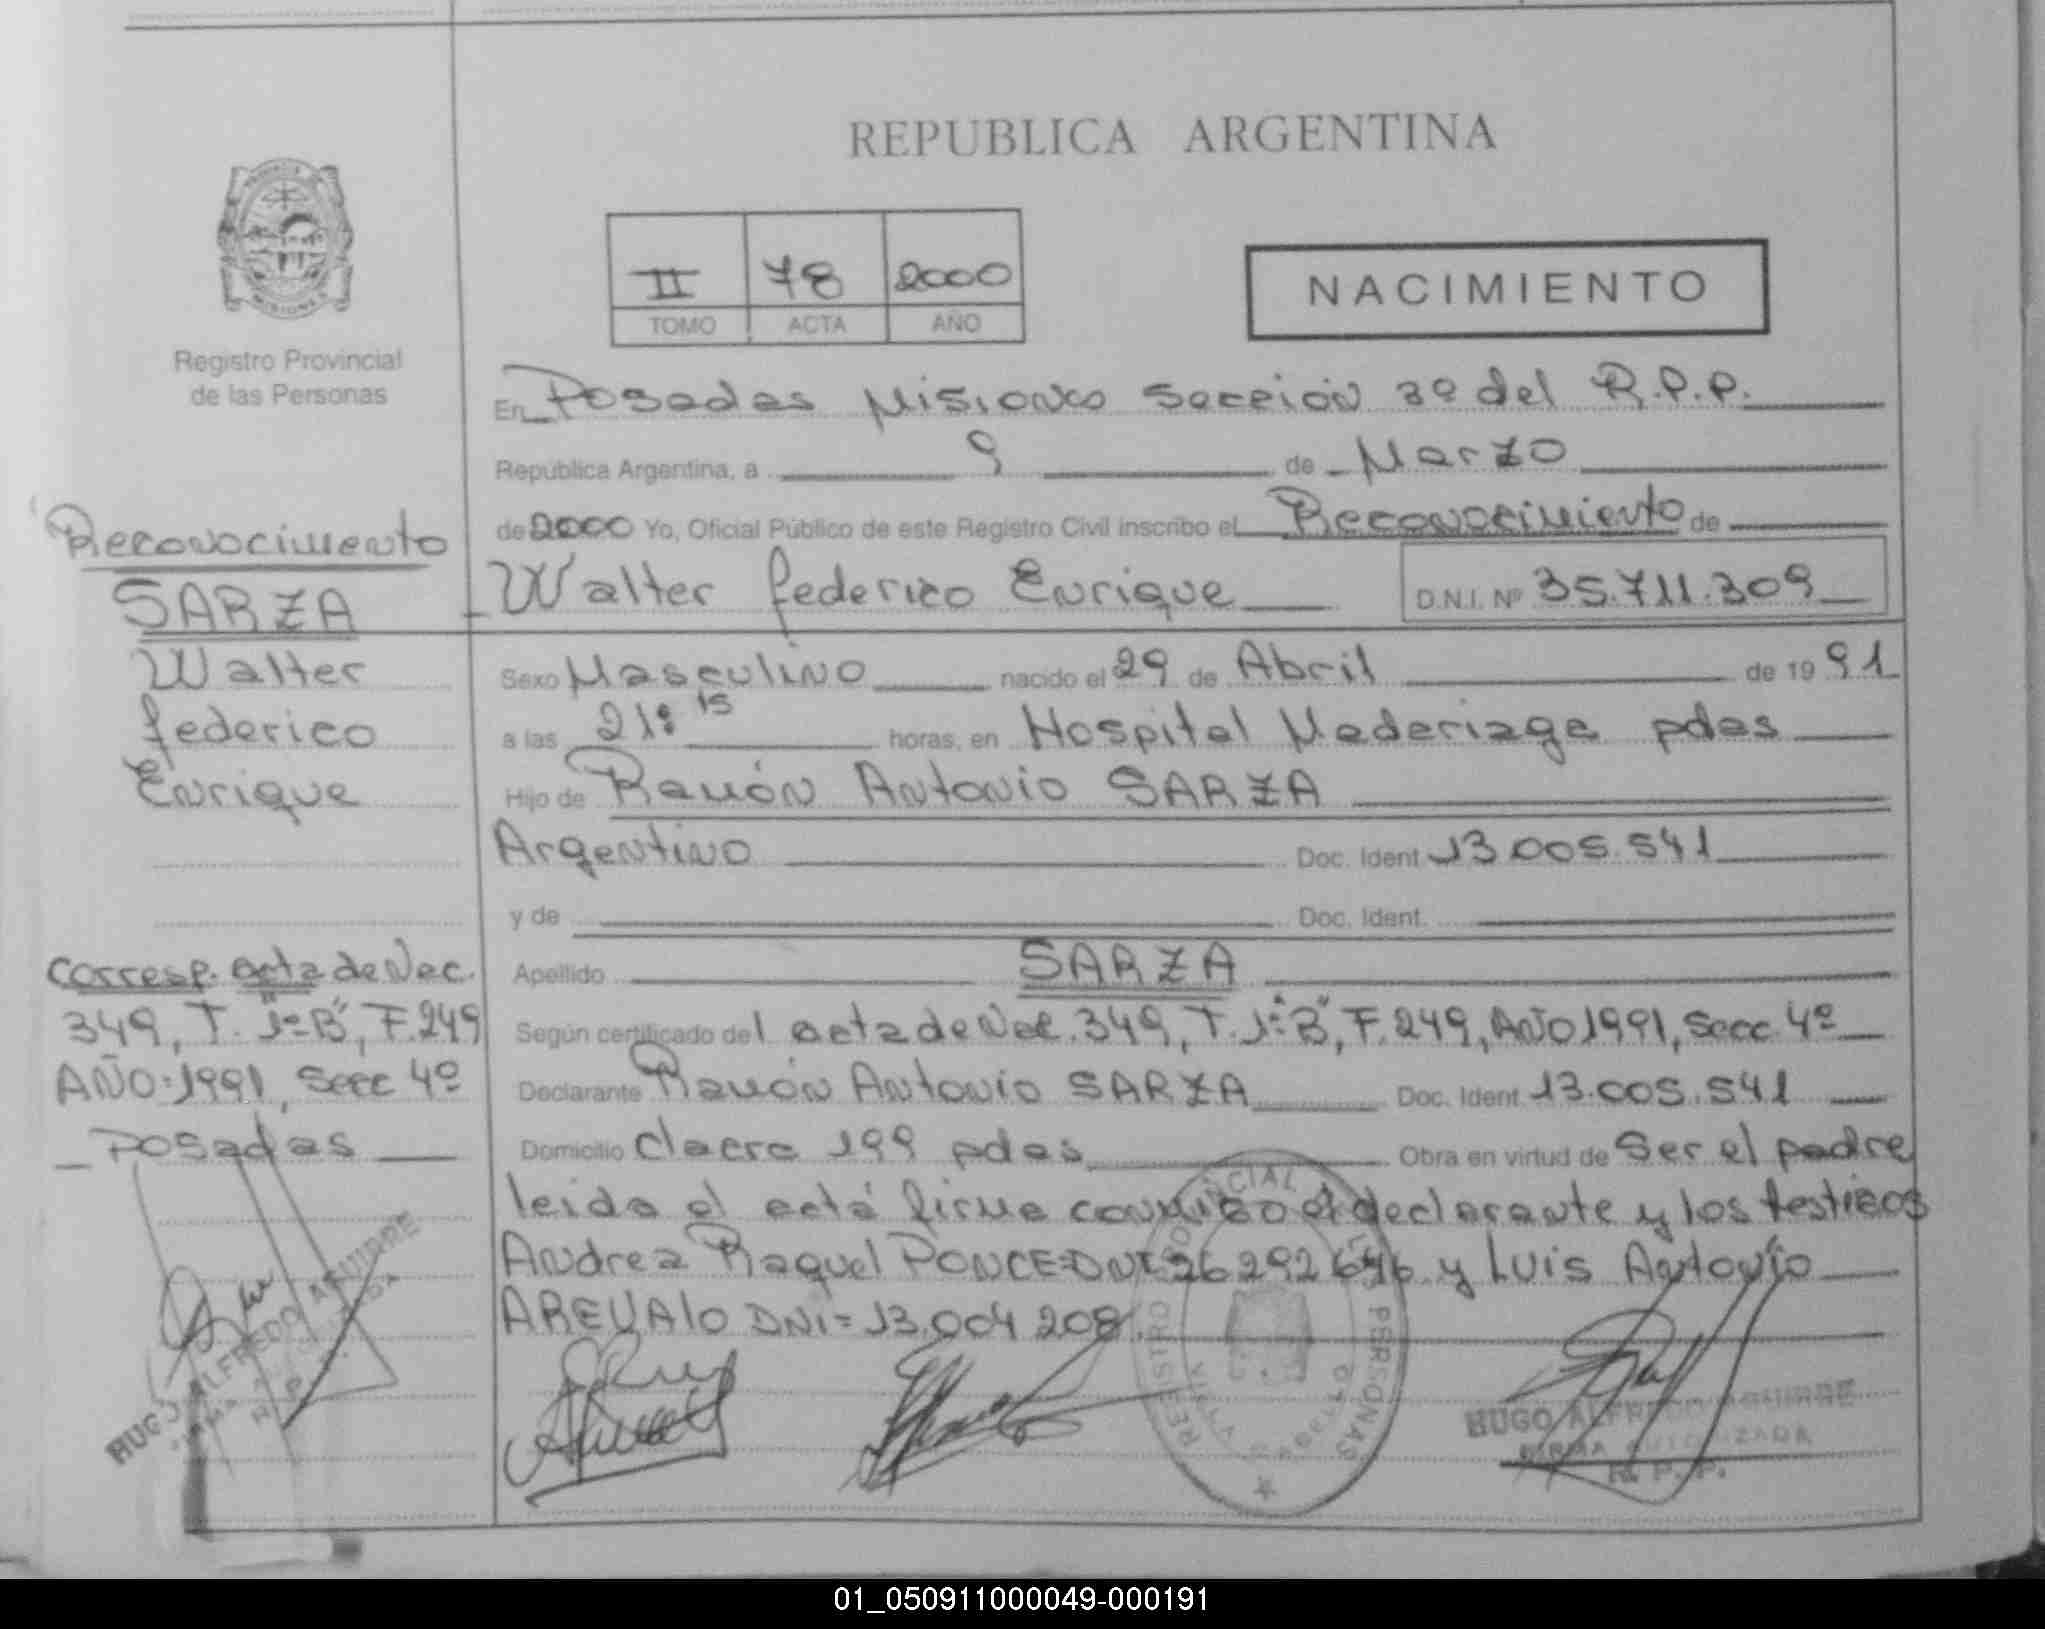 REPUBLICA ARGENTINA
II 78 2000
TOMO ACTA AÑO
NACIMIENTO
Registro Provincial
de las Personas
En Posadas Misiones Sección 3º del R.P.P.
República Argentina, a 9 de Marzo
de 2000 Yo, Oficial Público de este Registro Civil inscribo el Reconocimiento de
Walter Federico Enrique D.N.I. Nº 35.711.309
Sexo Masculino nacido el 29 de Abril de 1991
a las 21:15 horas, en Hospital Madariaga pdas
Hijo de Ramón Antonio SARZA
Argentino Doc. Ident 13.005.541
y de Doc. Ident.
Apellido SARZA
Según certificado del acta de Nac. 349, T. 1º "B", F. 249, AÑO 1991, Secc 4º
Declarante Ramón Antonio SARZA Doc. Ident 13.005.541
Domicilio Chacra 199 pdas Obra en virtud de Ser el padre
leida el acta firma conmigo el declarante y los testigos
Andrea Raquel PONCE=DNI 26 292 646 y Luis Antonio
AREVALO DNI= 13.004 208
Reconocimiento
SARZA
Walter
Federico
Enrique
Corresp. acta de Nac.
349, T. 1º "B", F. 249
AÑO=1991, Secc 4º
Posadas
HUGO ALFREDO AGUIRRE
R. P. P.
REGISTRO PROVINCIAL LAS PERSONAS
VILLA CABELLO
HUGO ALFREDO AGUIRRE
FIRMA AUTORIZADA
R. P. P.
01_050911000049-000191